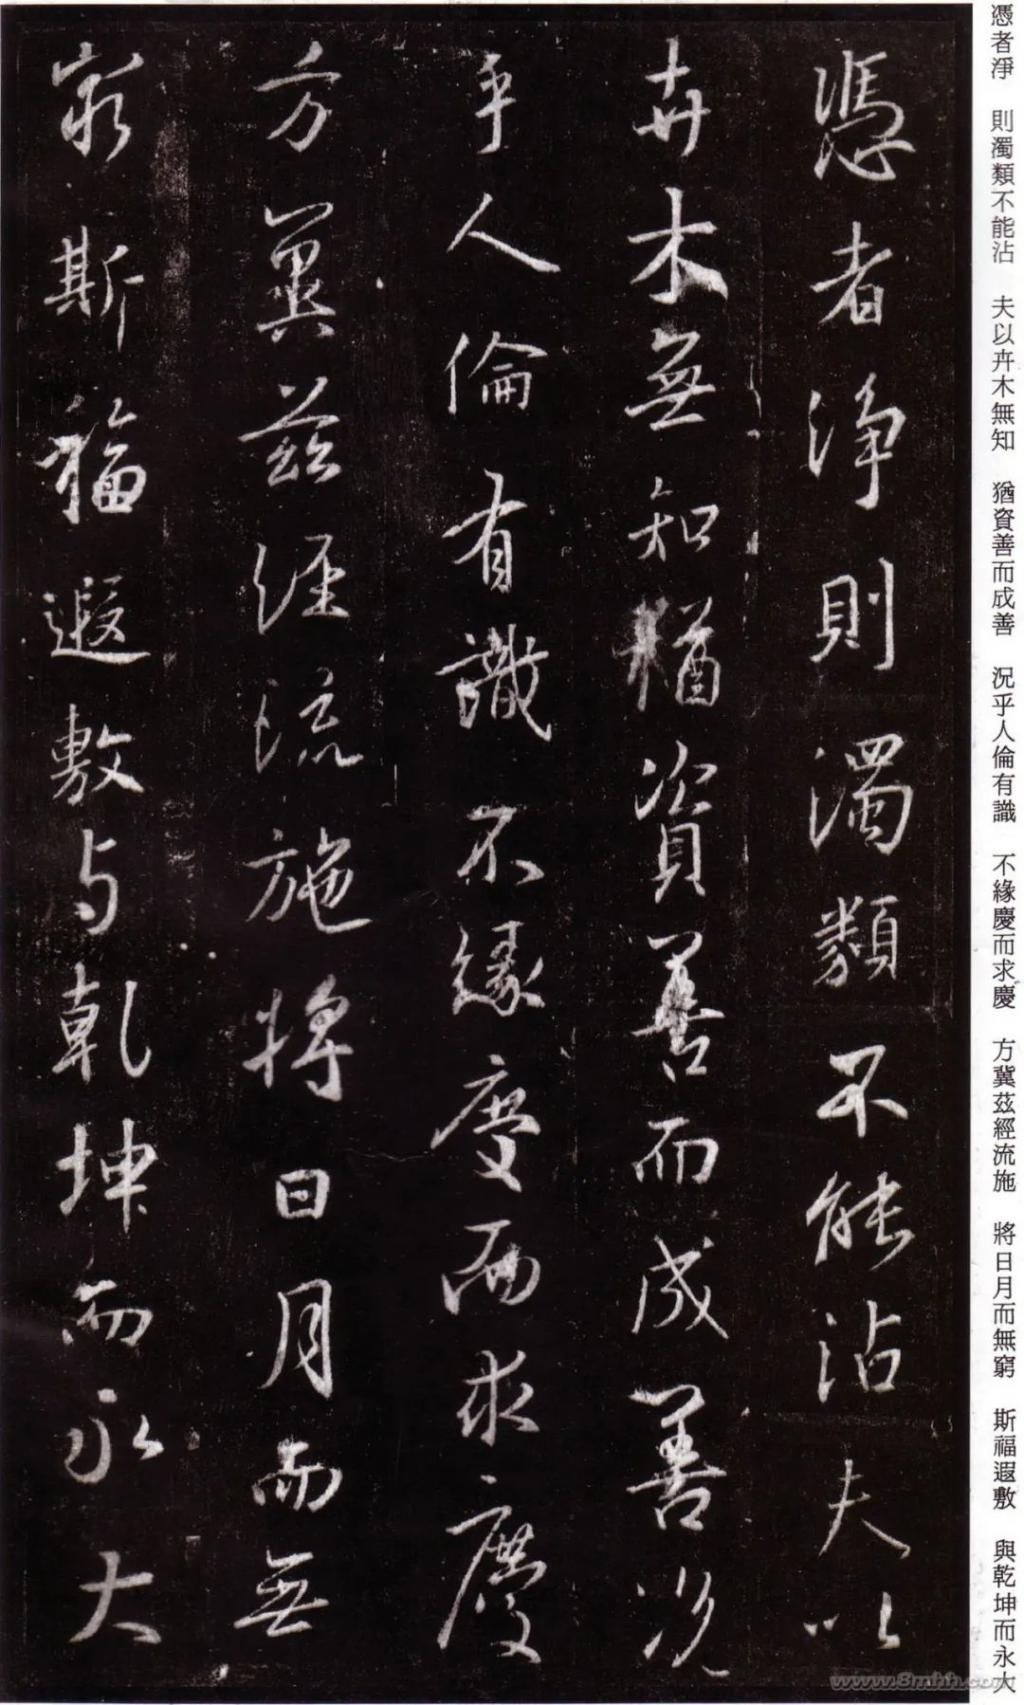 憑者淨 則濁類不能沾 夫以卉木無知 猶資善而成善 況乎人倫有識 不緣慶而求慶 方冀茲經流施 將日月而無窮 斯福遐敷 與乾坤而永大
憑者淨則濁類不能沾夫以
卉木無知猶資善而成善況
乎人倫有識不緣慶而求慶
方冀茲經流施將日月而無
窮斯福遐敷与乾坤而永大